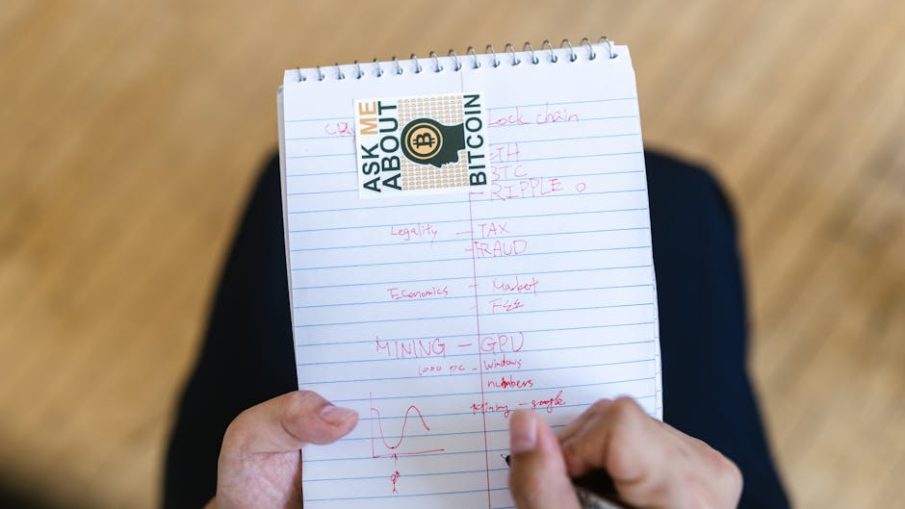 ASK ME
ABOUT
BITCOIN
lock chain
ETH
BTC
- RIPPLE
Legality - TAX
- FRAUD
Economics - Market
- FEE
MINING - GPU
1000 PC - Windows
numbers
- google